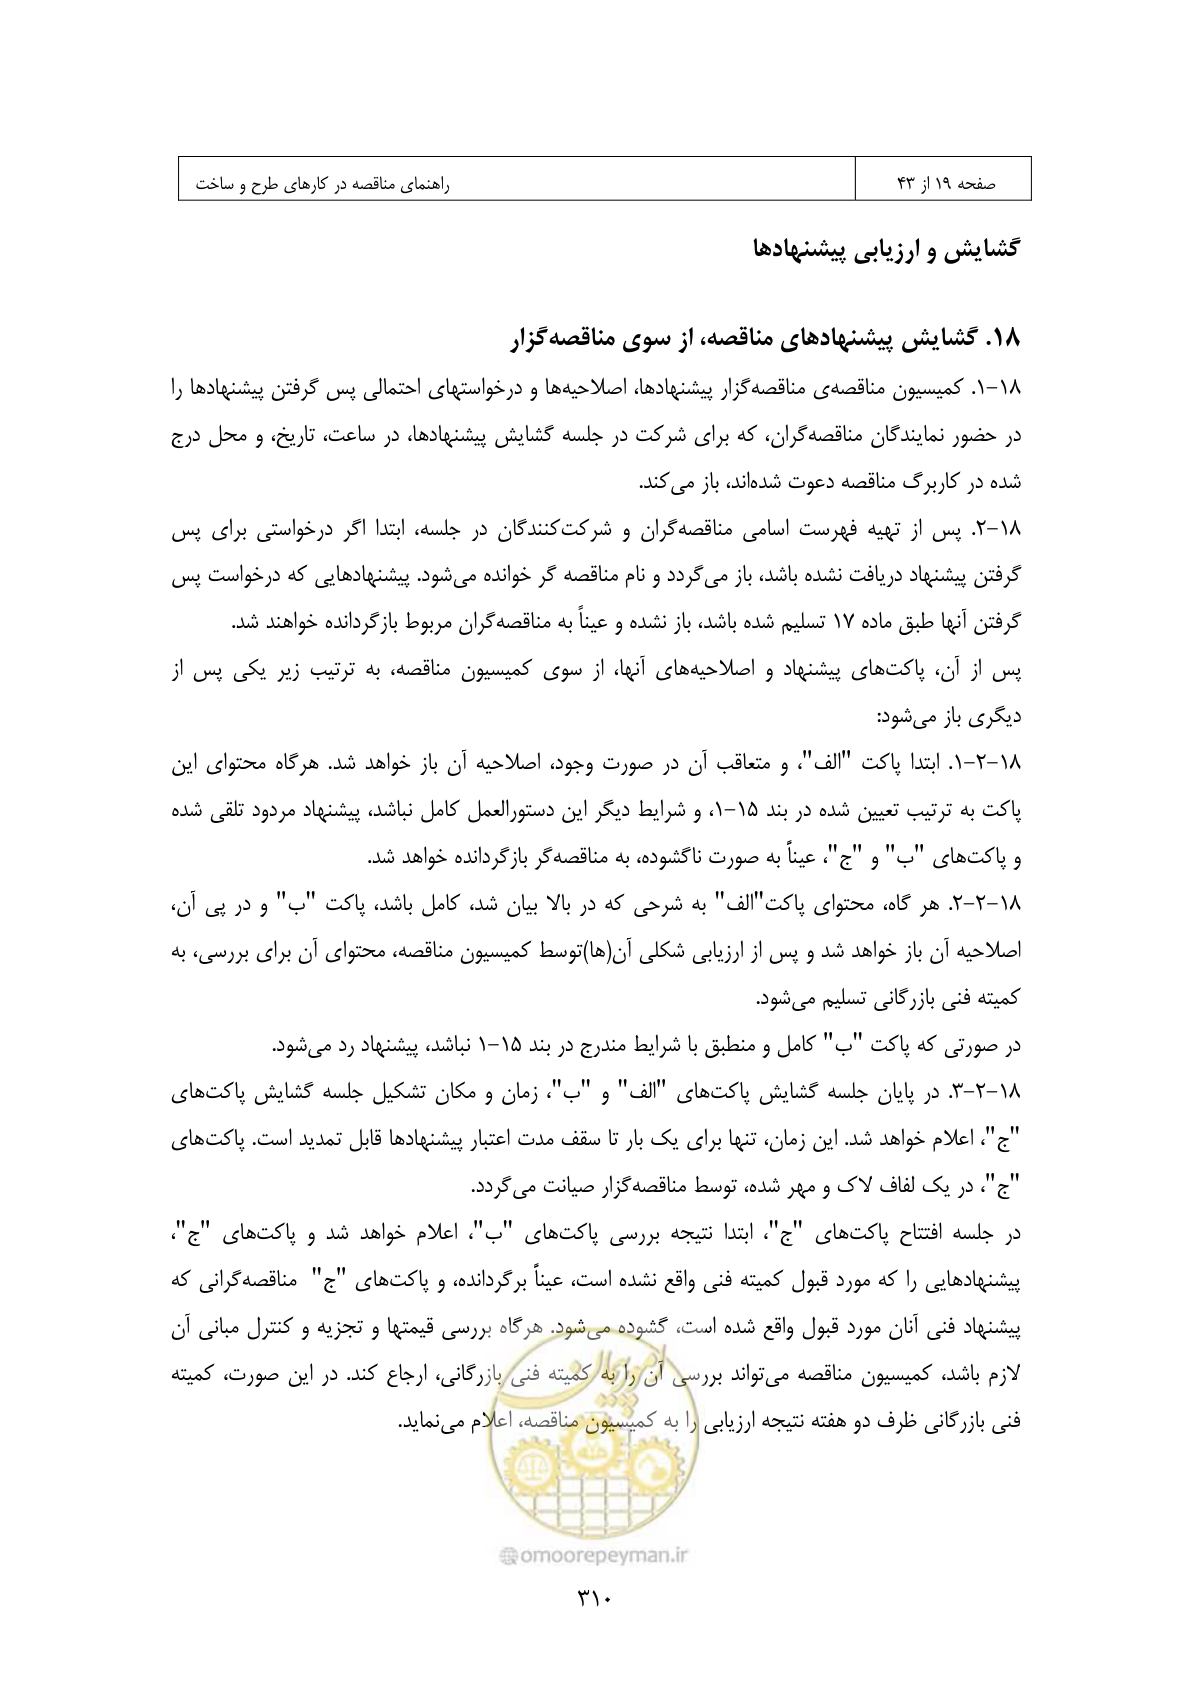 صفحه ۱۹ از ۴۳
راهنمای مناقصه در کارهای طرح و ساخت
گشایش و ارزیابی پیشنهادها
۱۸. گشایش پیشنهادهای مناقصه، از سوی مناقصه‌گزار
۱۸-۱. کمیسیون مناقصه‌ی مناقصه‌گزار پیشنهادها، اصلاحیه‌ها و درخواستهای احتمالی پس گرفتن پیشنهادها را
در حضور نمایندگان مناقصه‌گران، که برای شرکت در جلسه گشایش پیشنهادها، در ساعت، تاریخ، و محل درج
شده در کاربرگ مناقصه دعوت شده‌اند، باز می‌کند.
۱۸-۲. پس از تهیه فهرست اسامی مناقصه‌گران و شرکت‌کنندگان در جلسه، ابتدا اگر درخواستی برای پس
گرفتن پیشنهاد دریافت نشده باشد، باز می‌گردد و نام مناقصه گر خوانده می‌شود. پیشنهادهایی که درخواست پس
گرفتن آنها طبق ماده ۱۷ تسلیم شده باشد، باز نشده و عیناً به مناقصه‌گران مربوط بازگردانده خواهند شد.
پس از آن، پاکت‌های پیشنهاد و اصلاحیه‌های آنها، از سوی کمیسیون مناقصه، به ترتیب زیر یکی پس از
دیگری باز می‌شود:
۱۸-۲-۱. ابتدا پاکت "الف"، و متعاقب آن در صورت وجود، اصلاحیه آن باز خواهد شد. هرگاه محتوای این
پاکت به ترتیب تعیین شده در بند ۱۵-۱، و شرایط دیگر این دستورالعمل کامل نباشد، پیشنهاد مردود تلقی شده
و پاکت‌های "ب" و "ج"، عیناً به صورت ناگشوده، به مناقصه‌گر بازگردانده خواهد شد.
۱۸-۲-۲. هر گاه، محتوای پاکت"الف" به شرحی که در بالا بیان شد، کامل باشد، پاکت "ب" و در پی آن،
اصلاحیه آن باز خواهد شد و پس از ارزیابی شکلی آن(ها)توسط کمیسیون مناقصه، محتوای آن برای بررسی، به
کمیته فنی بازرگانی تسلیم می‌شود.
در صورتی که پاکت "ب" کامل و منطبق با شرایط مندرج در بند ۱۵-۱ نباشد، پیشنهاد رد می‌شود.
۱۸-۲-۳. در پایان جلسه گشایش پاکت‌های "الف" و "ب"، زمان و مکان تشکیل جلسه گشایش پاکت‌های
"ج"، اعلام خواهد شد. این زمان، تنها برای یک بار تا سقف مدت اعتبار پیشنهادها قابل تمدید است. پاکت‌های
"ج"، در یک لفاف لاک و مهر شده، توسط مناقصه‌گزار صیانت می‌گردد.
در جلسه افتتاح پاکت‌های "ج"، ابتدا نتیجه بررسی پاکت‌های "ب"، اعلام خواهد شد و پاکت‌های "ج"،
پیشنهادهایی را که مورد قبول کمیته فنی واقع نشده است، عیناً برگردانده، و پاکت‌های "ج" مناقصه‌گرانی که
پیشنهاد فنی آنان مورد قبول واقع شده است، گشوده می‌شود. هرگاه بررسی قیمتها و تجزیه و کنترل مبانی آن
لازم باشد، کمیسیون مناقصه می‌تواند بررسی آن را به کمیته فنی بازرگانی، ارجاع کند. در این صورت، کمیته
فنی بازرگانی ظرف دو هفته نتیجه ارزیابی را به کمیسیون مناقصه، اعلام می‌نماید.
امور پیمان
omoorepeyman.ir
۳۱۰